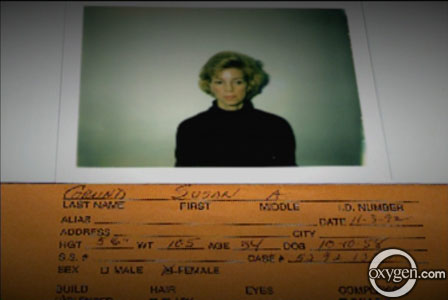 GRUND SUSAN A
LAST NAME FIRST MIDDLE I.D. NUMBER
ALIAS DATE 11-3-92
ADDRESS CITY
HGT 5'6" WT 105 AGE 34 DOB 10-10-58
S.S.# CASE#
SEX MALE FEMALE
BUILD HAIR EYES
oxygen.com